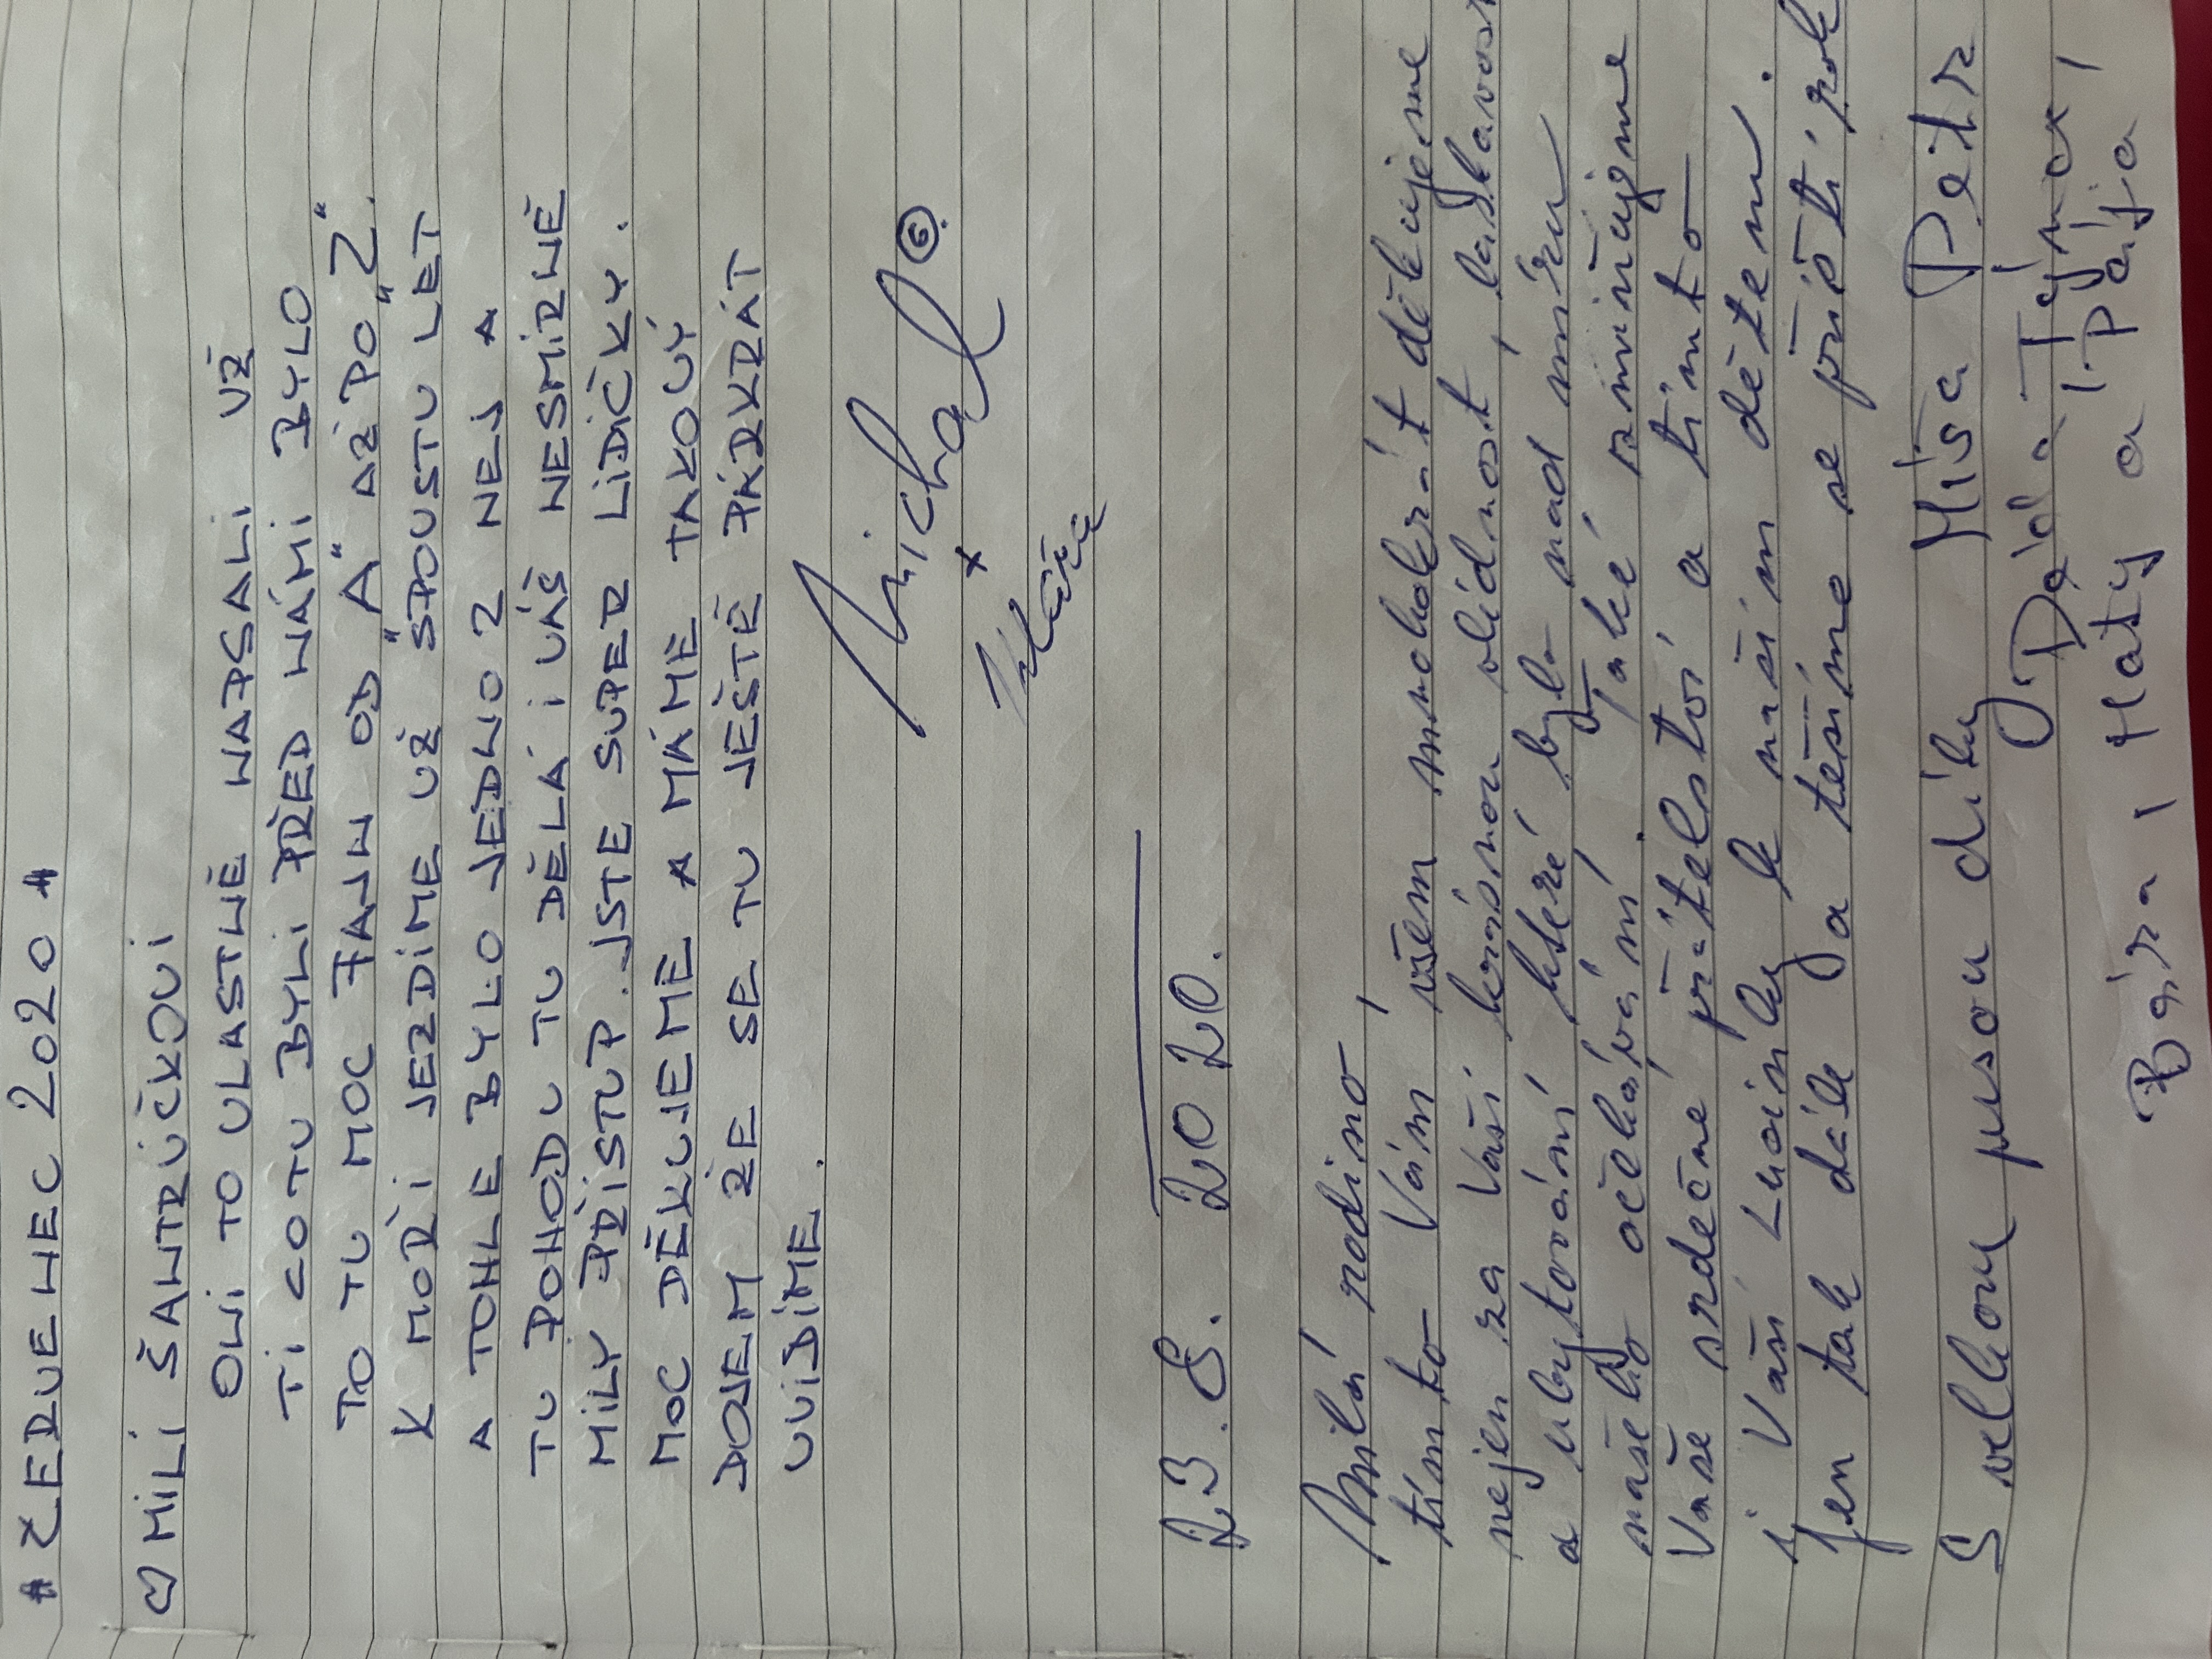 # ČERVENEC 2020 #
♡ MILÍ ŠANTRŮČKOVI
ONI TO VLASTNĚ NAPSALI UŽ
TI CO TU BYLI PŘED NÁMI BYLO
TO TU MOC FAJN OD „A“ AŽ PO „Z“.
K MOŘI JEZDÍME UŽ SPOUSTU LET
A TOHLE BYLO JEDNO Z NEJ A
TU POHODU TU DĚLÁ I VÁŠ NESMÍRNĚ
MILÝ PŘÍSTUP. JSTE SUPER LIDIČKY.
MOC DĚKUJEME A MÁME TAKOVÝ
DOJEM ŽE SE TU JEŠTĚ PÁRKRÁT
UVIDÍME.
Michal
+
23. 8. 2020.
Milá rodino,
tímto Vám všem mnohokrát děkujeme
nejen za Vaši krásnou vlídnost, laskavost
a ubytování které bylo nad míru
našeho očekávání. Také smiňujeme
Vaše srdečné přátelství a tímto
i Vaší Lucinky k našim dětem.
Jen tak dále a těšíme se příští rok
S velkou pusou díky Míša Petr
Týna,
Bára, Maty a Pája